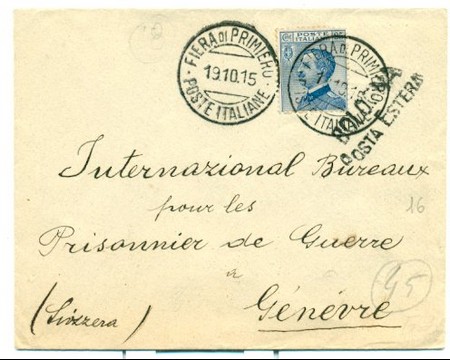 FIERA DI PRIMIERO
19.10.15
POSTE ITALIANE
POSTE
ITALIANE
FIERA DI PRIMIERO
POSTE ITALIANE
BOLOGNA
POSTA ESTERA
Internazional Bureaux
pour les
Prisonnier de Guerre
à
Génévre
(Svizzera)
26
45